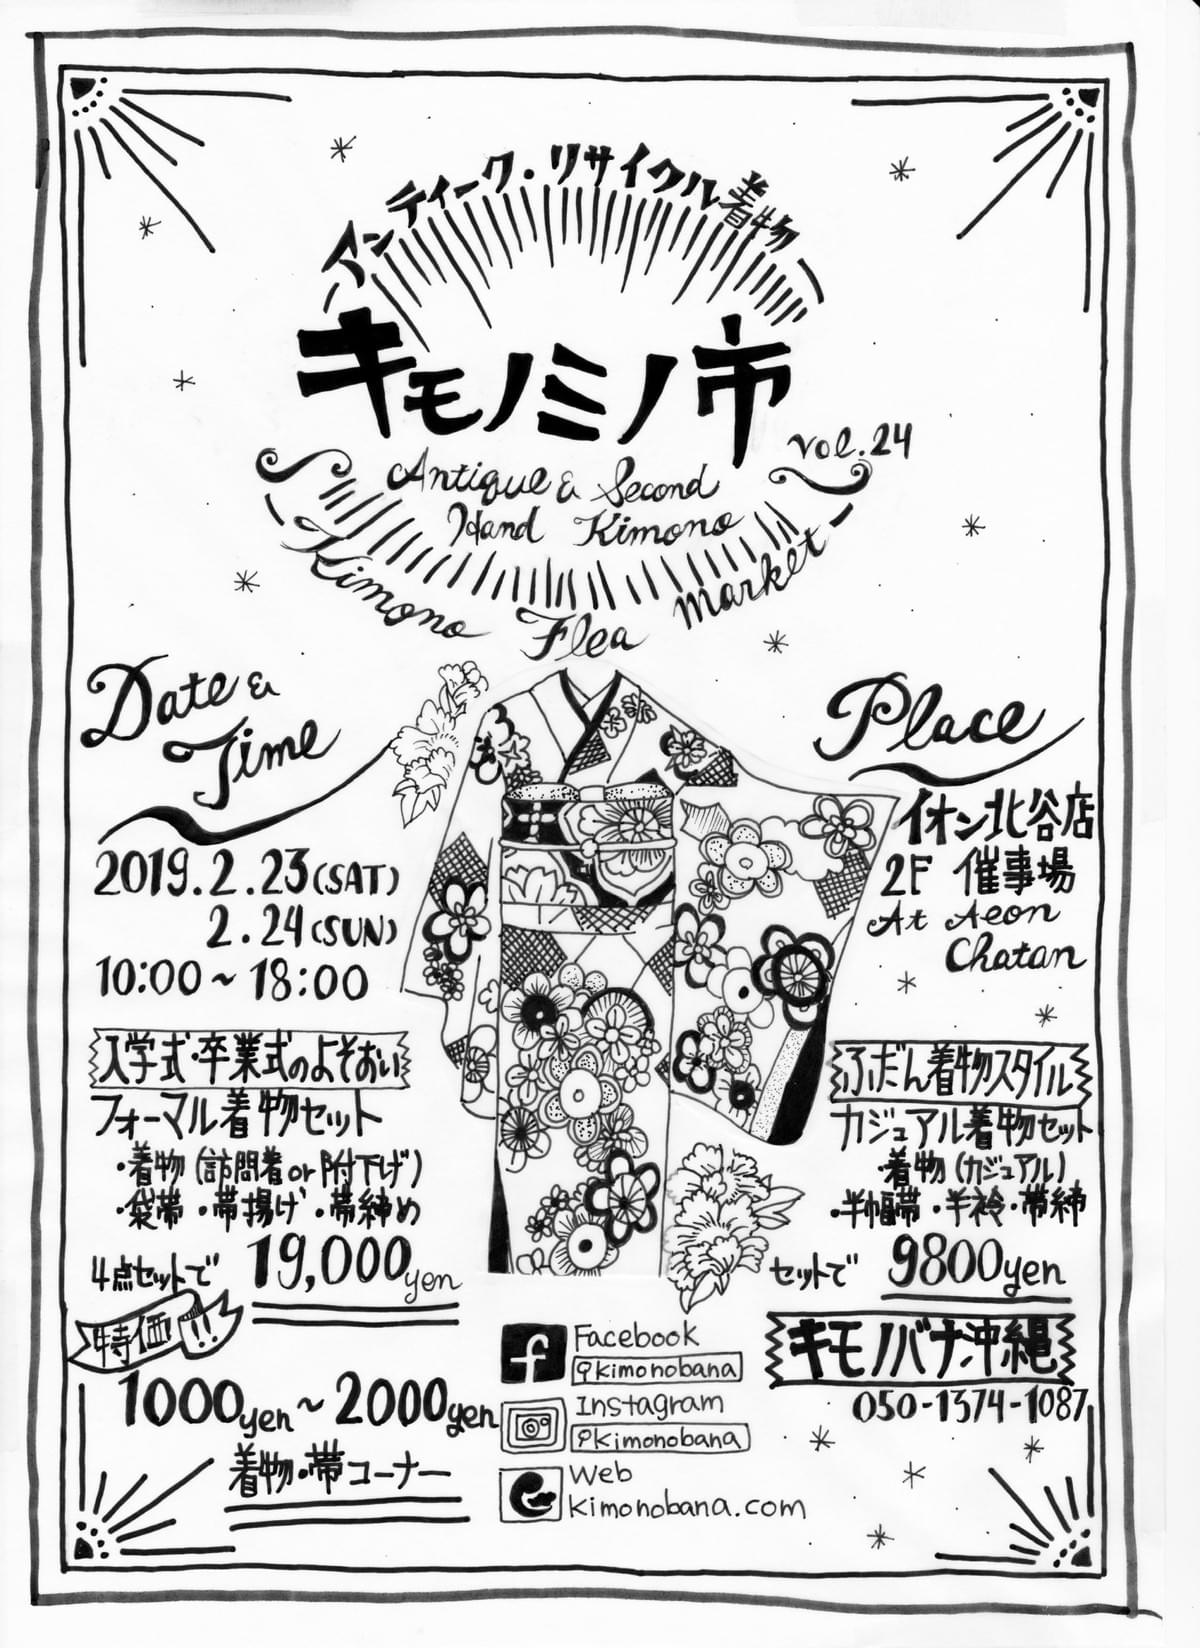 アンティーク・リサイクル着物
キモノミノ市
vol.24
Antique & Second
Hand Kimono
Kimono Flea market
Date &
Time
2019.2.23(SAT)
2.24(SUN)
10:00~18:00
Place
イオン北谷店
2F 催事場
At Aeon
Chatan
入学式・卒業式のよそおい
フォーマル着物セット
・着物(訪問着or附下げ)
・袋帯・帯揚げ・帯締め
4点セットで 19,000yen
特価!!
1000yen~2000yen
着物・帯コーナー
ふだん着物スタイル
カジュアル着物セット
・着物(カジュアル)
・半幅帯・半衿・帯締
セットで 9800yen
キモノバナ沖縄
050-1374-1087
Facebook
kimonobana
Instagram
kimonobana
Web
kimonobana.com